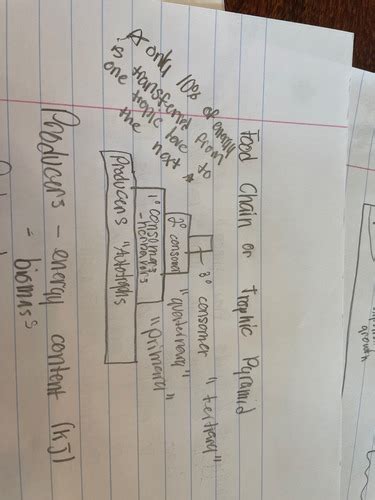 Food Chain or Trophic Pyramid
* only 10% of energy
is transferred from
one trophic leve to
the next *
+ 3° consomer "tertiary"
2° consom "quaternary"
1° consomers "primary"
- herbavors
Producers "Autotrophs
Producers - energy content (KJ)
- biomass
growth